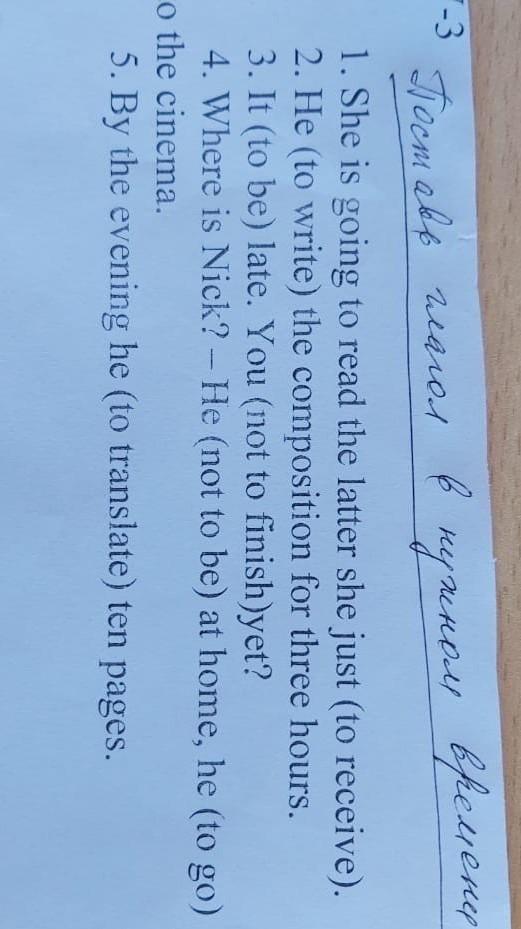 -3 Поставь глагол в нужном времени
1. She is going to read the latter she just (to receive).
2. He (to write) the composition for three hours.
3. It (to be) late. You (not to finish)yet?
4. Where is Nick? – He (not to be) at home, he (to go)
o the cinema.
5. By the evening he (to translate) ten pages.